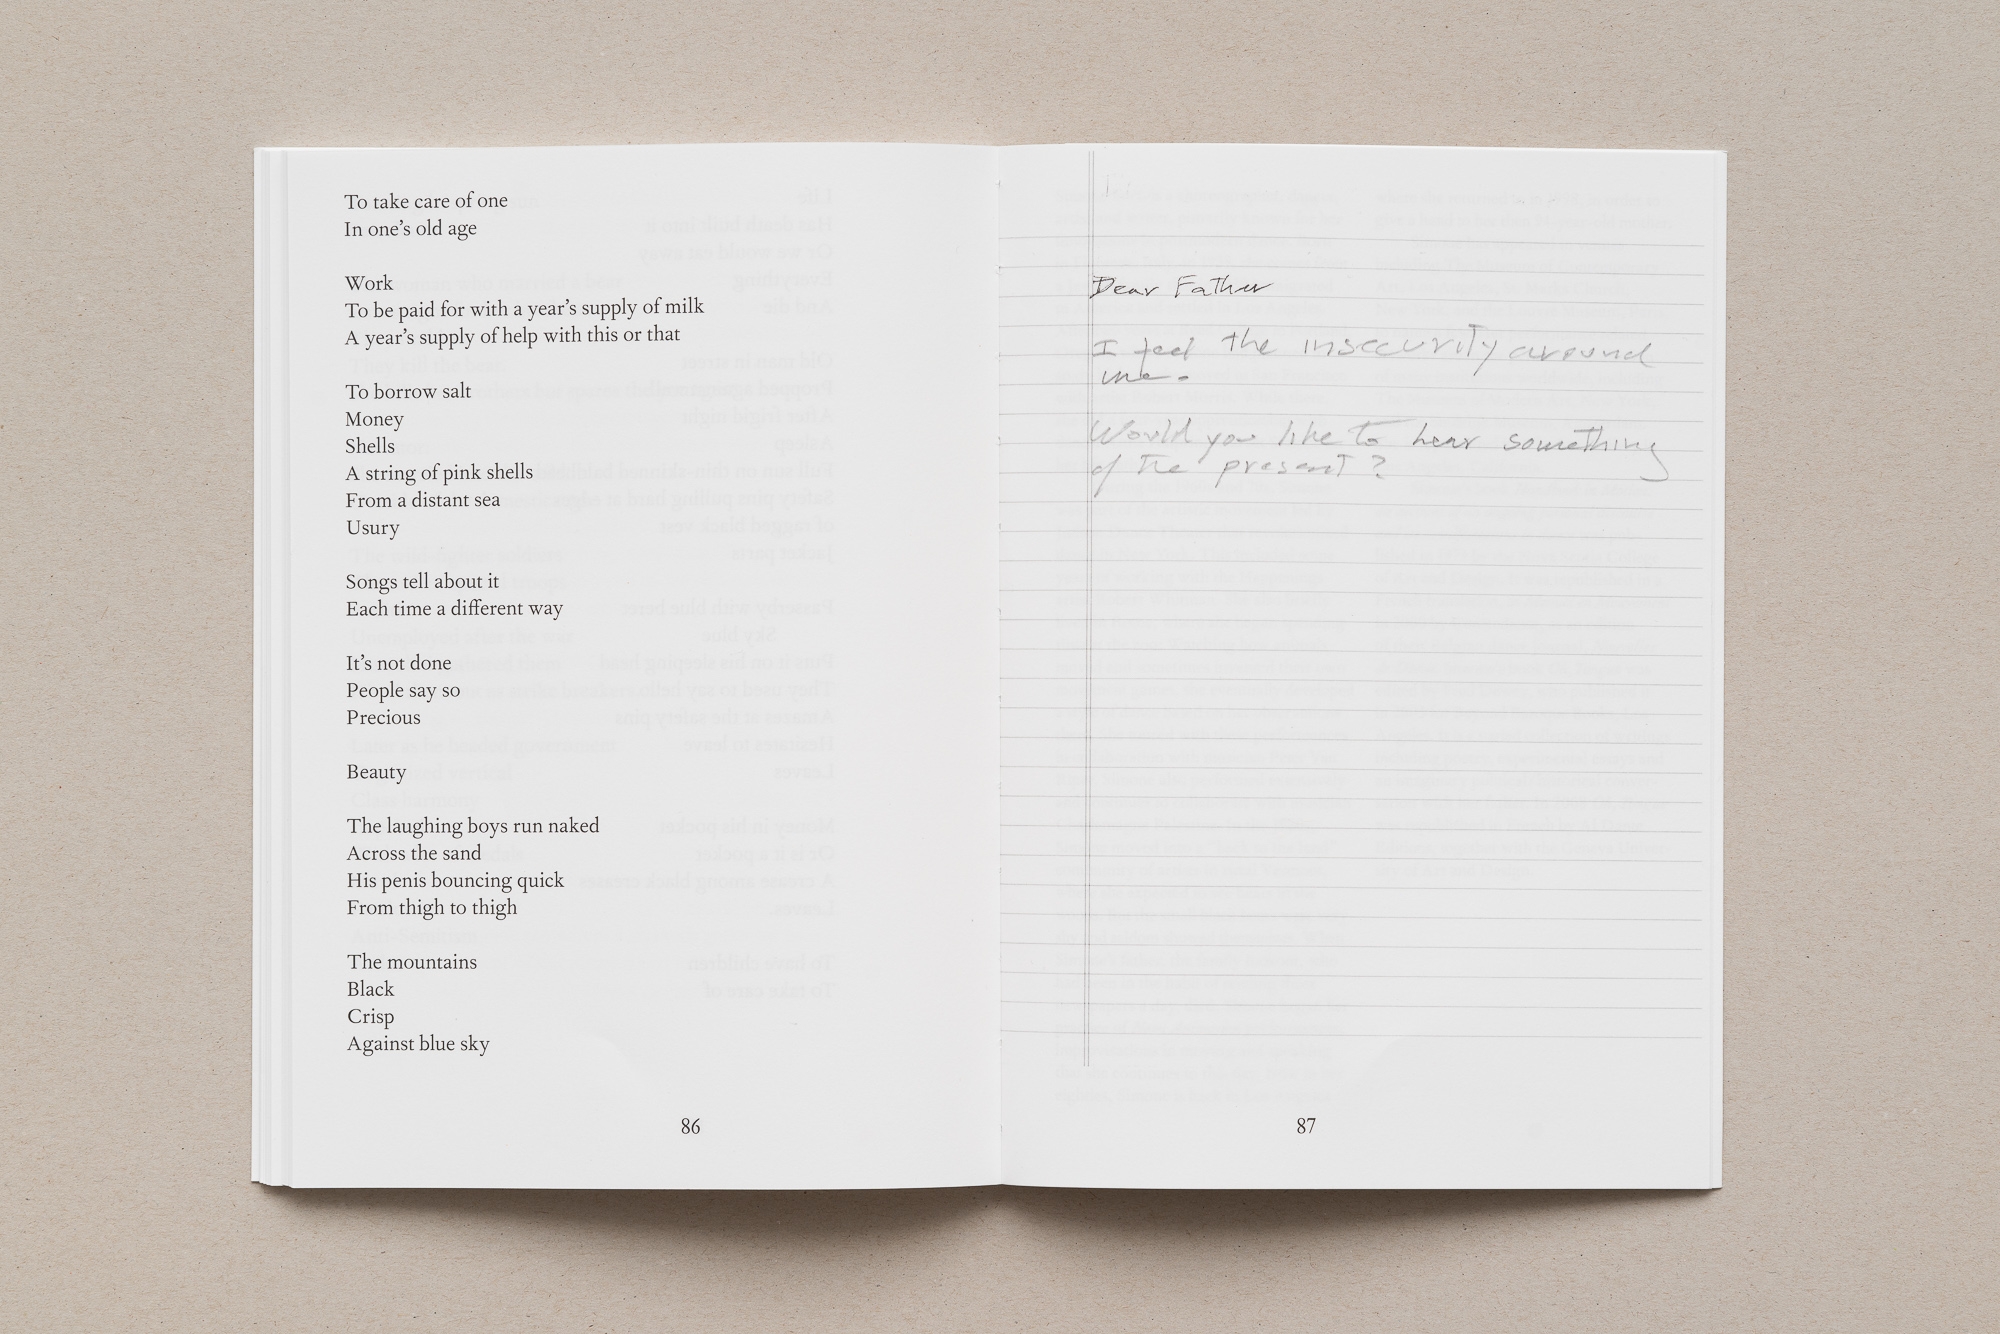 To take care of one
In one's old age
Work
To be paid for with a year's supply of milk
A year's supply of help with this or that
To borrow salt
Money
Shells
A string of pink shells
From a distant sea
Usury
Songs tell about it
Each time a different way
It's not done
People say so
Precious
Beauty
The laughing boys run naked
Across the sand
His penis bouncing quick
From thigh to thigh
The mountains
Black
Crisp
Against blue sky
86
Dear Father
I feel the insecurity around
me.
Would you like to hear something
of the present?
87